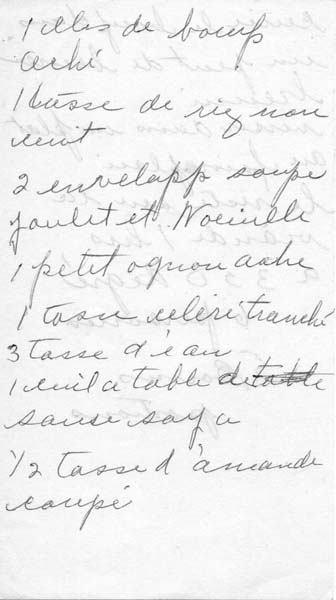 1 lbs de boeuf
aché
1 tasse de riz non
cuit
2 envelapp soupe
poulet et Nouille
1 petit ognon ache
1 tasse céléri tranché
3 tasse d'eau
1 cuil a table
sause soya
1/2 tasse d'amande
coupé